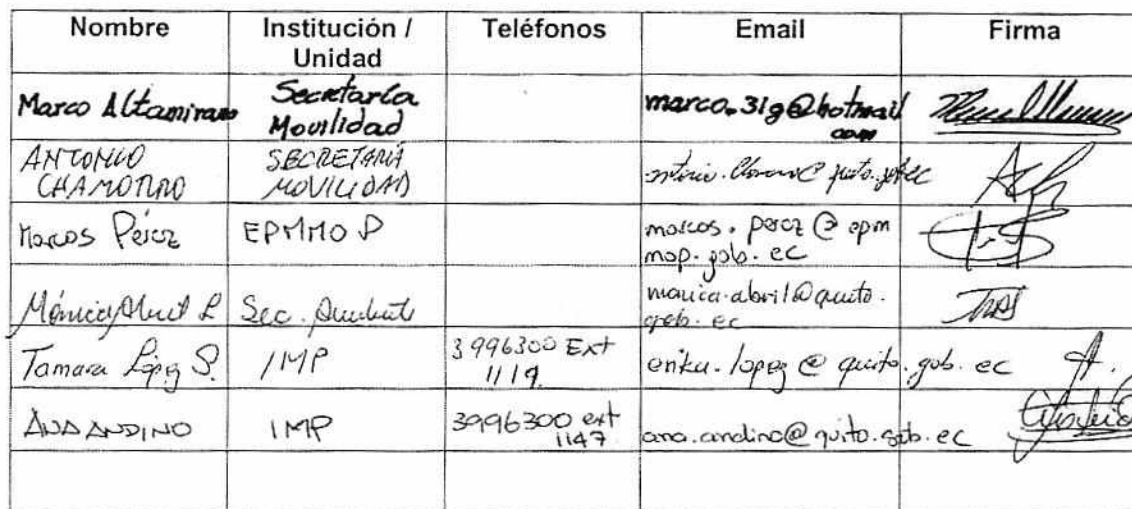 Nombre Institución / Unidad Teléfonos Email Firma
Marco Altamirano Secretaría Movilidad marco.31g@hotmail.com
ANTONIO CHAMORRO SECRETARIA MOVILIDAD quito.gob.ec
Marcos Pérez EPMMOP marcos.perez@epmmop.gob.ec
Mónica Abril L Sec. Ambiente monica.abril@quito.gob.ec
Tamara López S. IMP 3996300 Ext 1119 erika.lopez@quito.gob.ec
ANA ANDINO IMP 3996300 ext 1147 ana.andino@quito.gob.ec